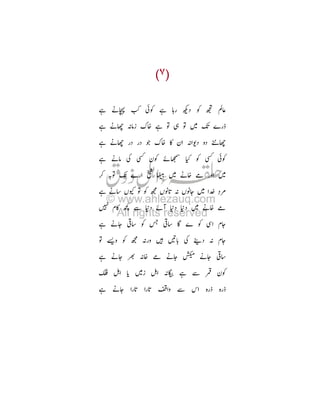 (۷)
عالم تجھ کو دیکھ رہا ہے کوئی کب پہچانے ہے
ذرے تک میں تو ہی تو ہے خاک زمانہ چھانے ہے
چھاننے دو دیوانہ ان کا خاک جو در در چھانے ہے
کوئی کسی کو کیا سمجھائے کون کسی کی مانے ہے
میں اور مے خانے میں بیٹھا شیخ ارے ٹک توبہ کر
مرد خدا میں جانوں نہ تانوں مجھ کو تو کیوں سانے ہے
مے خانے میں دنیا دنیا آئے دنیا سے کچھ کام نہیں
جام اسی کو دے گا ساقی جس کو ساقی جانے ہے
جام نہ دینے کی باتیں ہیں ورنہ مجھ کو ویسے تو
ساقی جانے میکش جانے مے خانہ بھر جانے ہے
کون قمر سے ہے بیگانہ اہل زمیں یا اہل فلک
ذرہ ذرہ اس سے واقف تارا تارا جانے ہے
© www.ahlezauq.com
All rights reserved